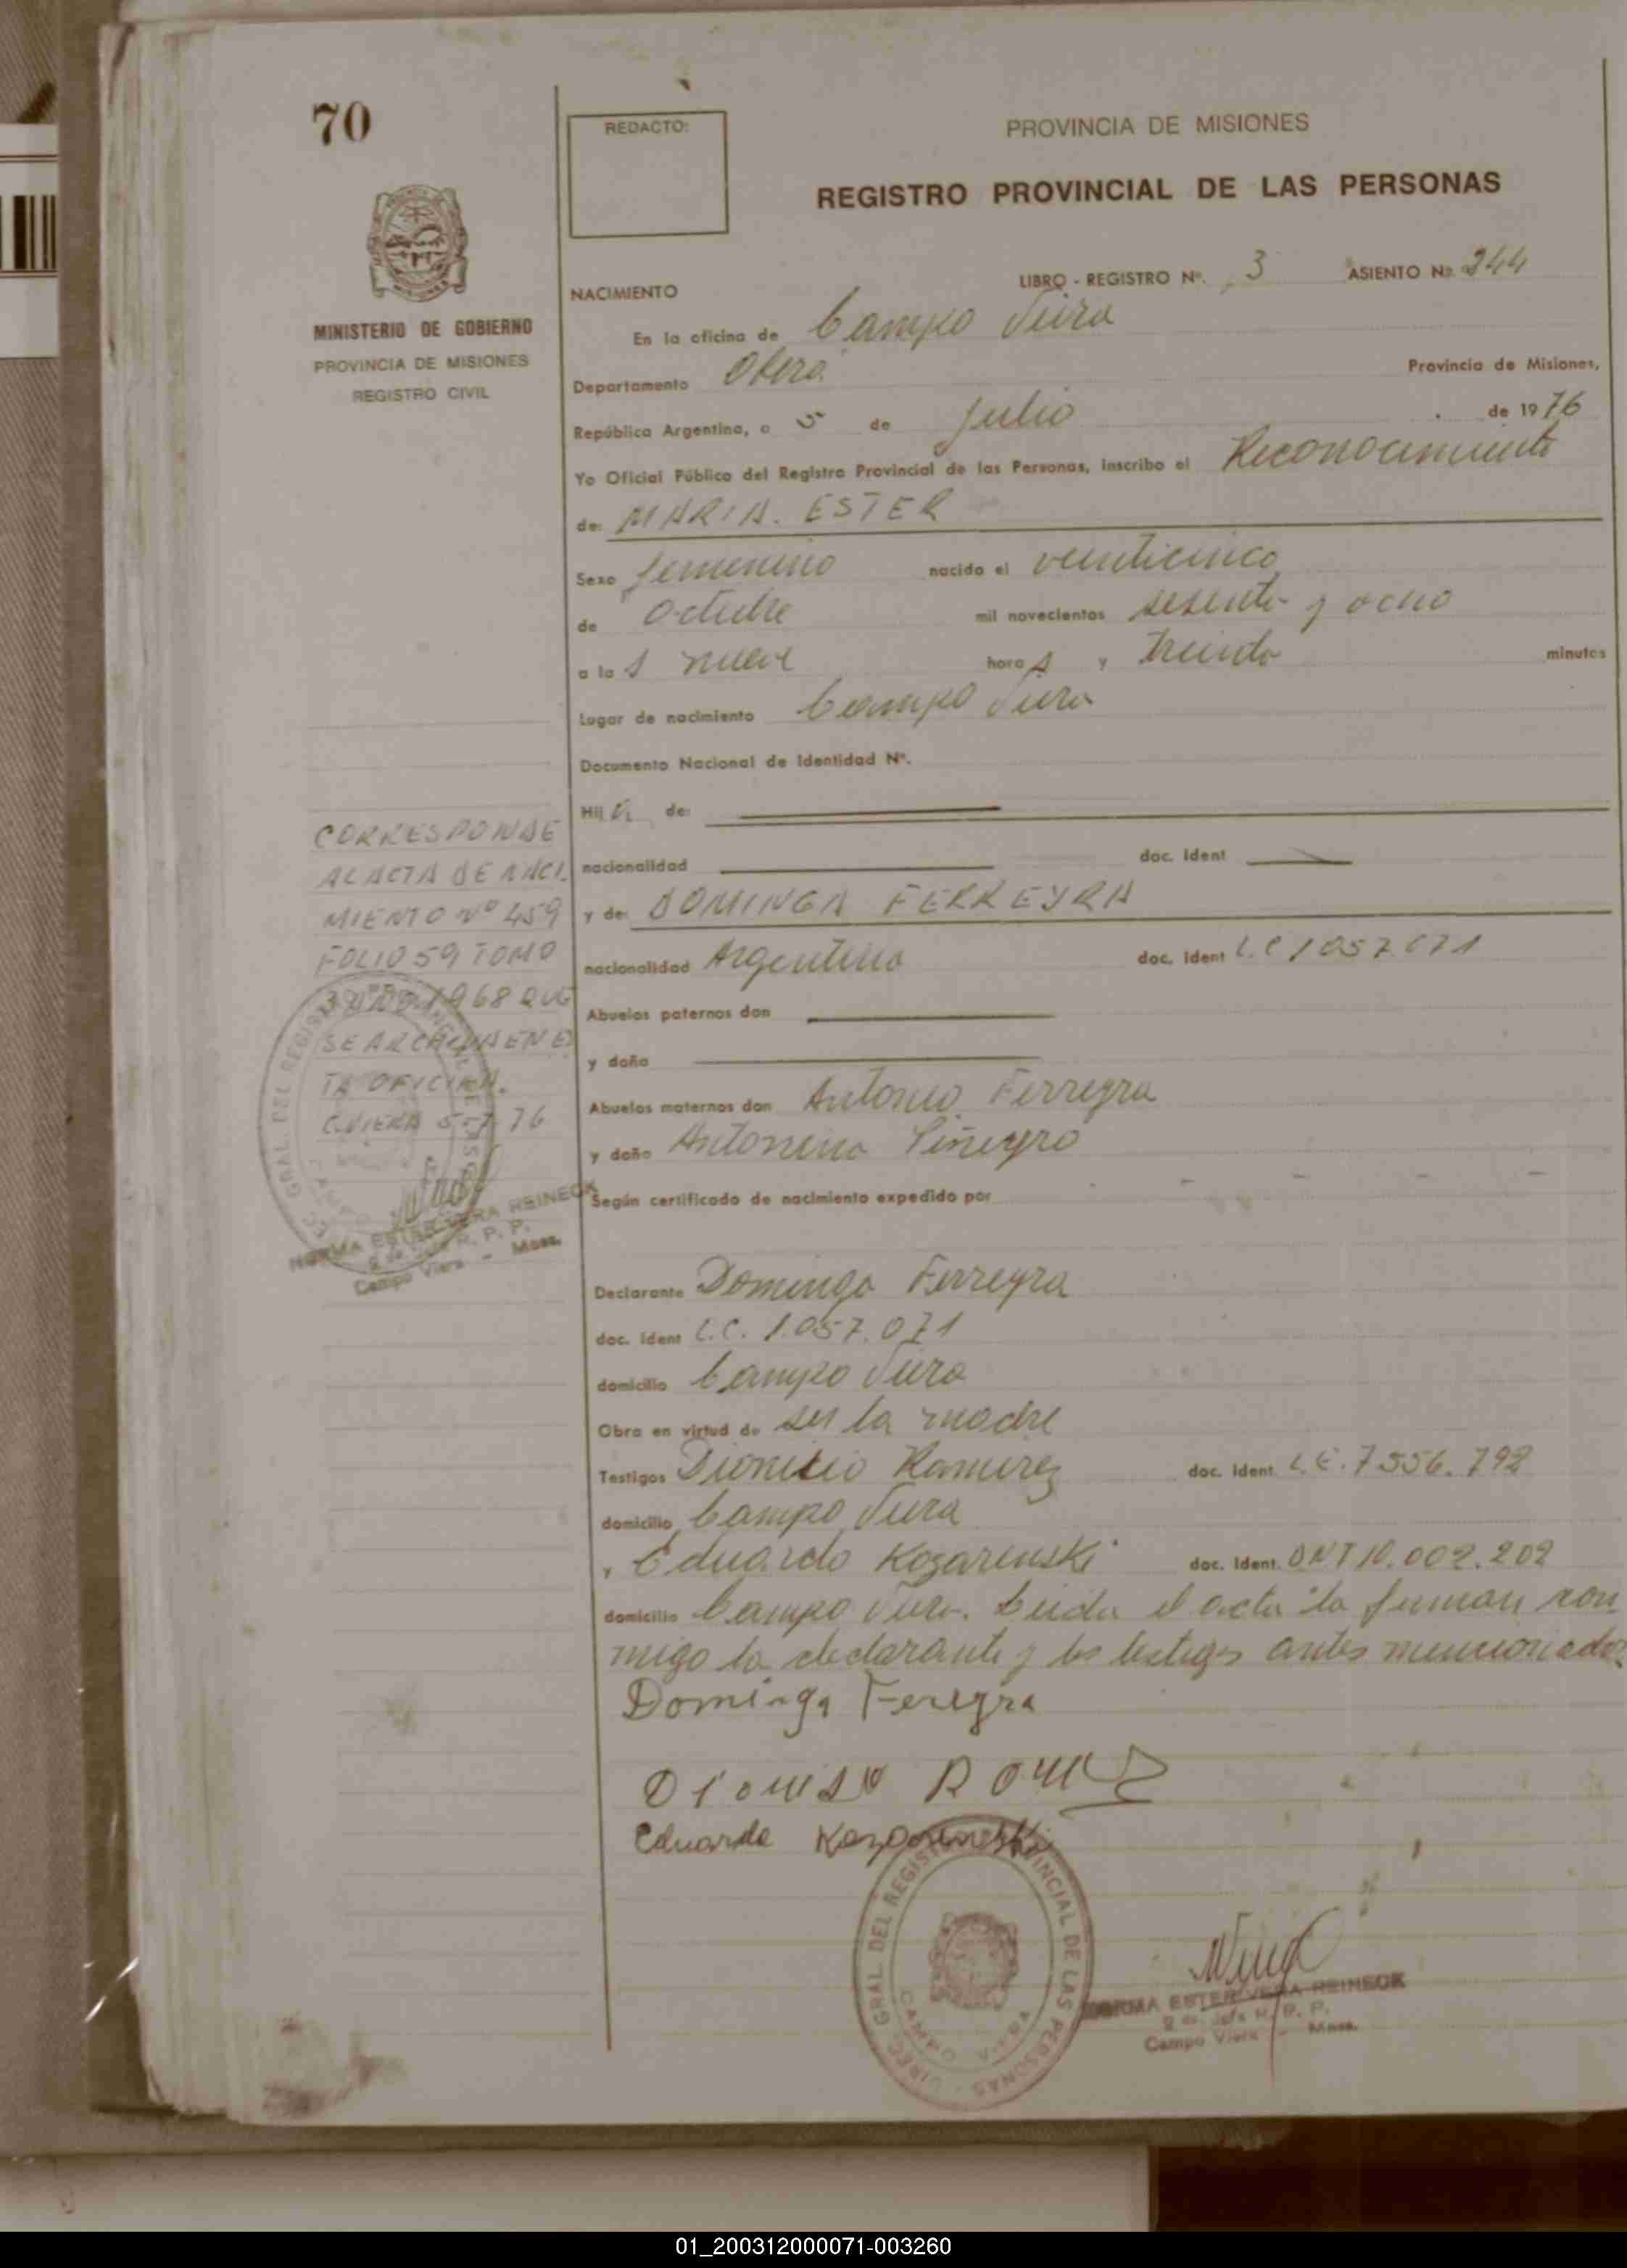 70
REDACTO:
PROVINCIA DE MISIONES
REGISTRO PROVINCIAL DE LAS PERSONAS
MINISTERIO DE GOBIERNO
PROVINCIA DE MISIONES
REGISTRO CIVIL
NACIMIENTO
LIBRO - REGISTRO Nº. 3 ASIENTO Nº. 244
En la oficina de Campo Viera
Departamento Oberá Provincia de Misiones,
República Argentina, a 5 de Julio de 1976
Yo Oficial Público del Registro Provincial de las Personas, inscribo el Reconocimiento
de: MARIA ESTER
Sexo femenino nacido el veinticinco
de Octubre mil novecientos sesenta y ocho
a las nueve horas y treinta minutos
Lugar de nacimiento Campo Viera
Documento Nacional de Identidad Nº.
Hija de:
nacionalidad doc. Ident
y de: DOMINGA FERREYRA
nacionalidad Argentina doc. Ident L.C 1057.071
Abuelos paternos don
y doña
Abuelos maternos don Antonio Ferreyra
y doña Antonina
Según certificado de nacimiento expedido por
CORRESPONDE
AL ACTA DE NACI
MIENTO Nº 459
FOLIO 59 TOMO
3 AÑO 1968 QUE
SE ARCHIVA EN ES
TA OFICINA.
C. VIERA 5-7-76
NORMA ESTER VERA REINECK
Campo Viera - Mnes.
Declarante Dominga Ferreyra
doc. Ident L.C. 1.057.071
domicilio Campo Viera
Obra en virtud de ser la madre
Testigos Dionicio Ramirez doc. Ident. L.E. 7.556.792
domicilio Campo Viera
y Eduardo Kozarenski doc. Ident. DNI 10.002.202
domicilio Campo Viera. Leida el acta la firman con
migo la declarante y los testigos antes mencionados.
Dominga Fereyra
Eduardo
GRAL. DEL REGISTRO PROVINCIAL DE LAS PERSONAS
CAMPO VIERA
NORMA ESTER VERA REINECK
Campo Viera - Mnes.
01_200312000071-003260